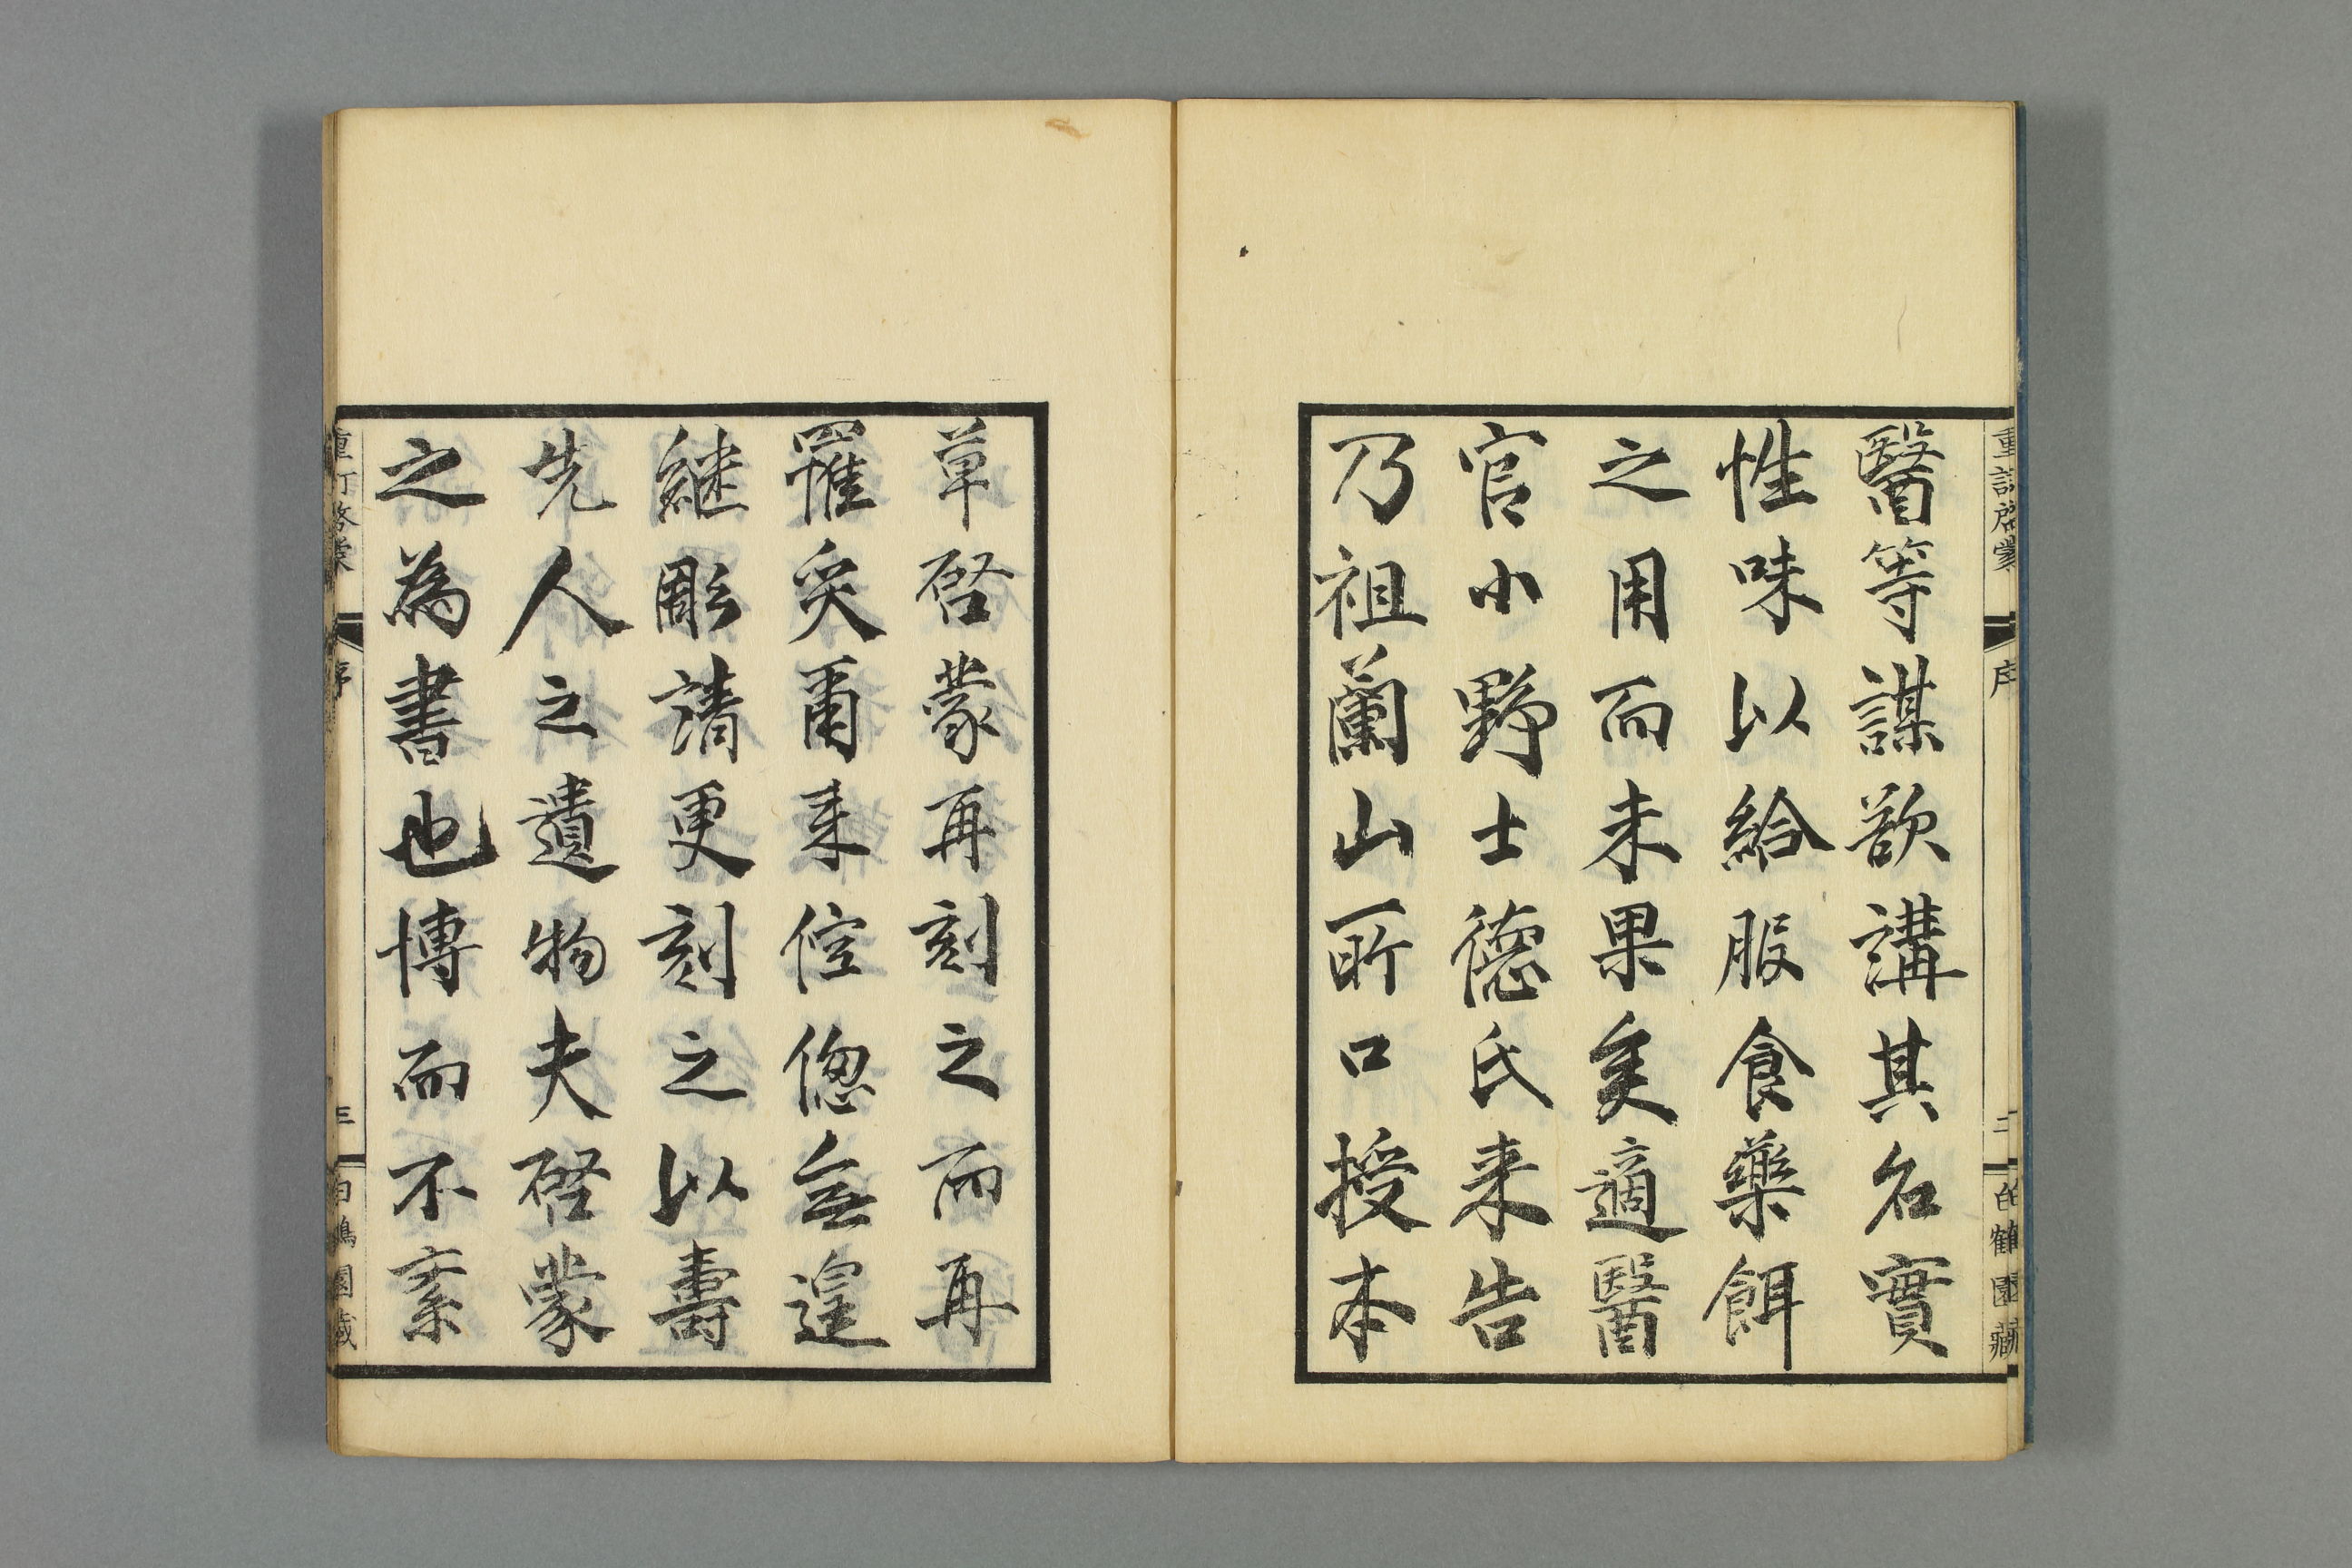 醫等謀欲講其名實
性味以給服食藥餌
之用而未果矣適醫
官小野士德氏来告
乃祖蘭山所口授本
草啓蒙再刻之而再
罹災爾来倥偬無遑
継彫請更刻之以壽
先人之遺物夫啓蒙
之為書也博而不紊
重訂啓蒙
序
二
白鶴園藏
重訂啓蒙
序
三